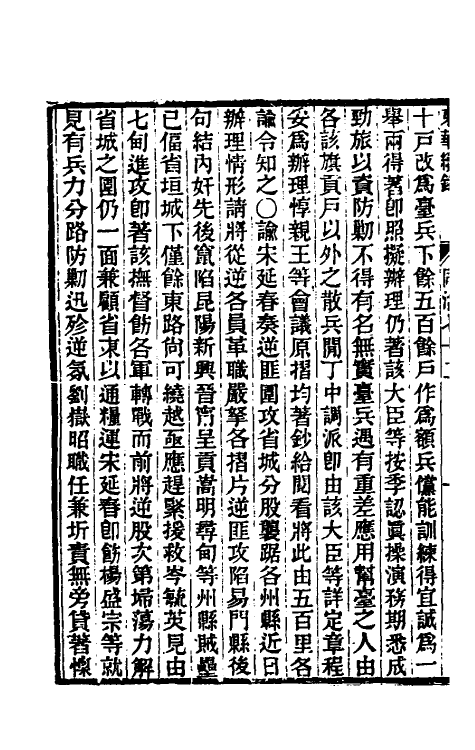 十戸改爲臺兵下餘五百餘戸作爲額兵儻能訓練得宜誠爲一
舉兩得著卽照擬辦理仍著該大臣等按季認眞操演務期悉成
勁旅以資防勦不得有名無實臺兵遇有重差應用幫臺之人由
各該旗貢戸以外之散兵閒丁中調派卽由該大臣等詳定章程
妥爲辦理惇親王等會議原摺均著鈔給閱看將此由五百里各
諭令知之○諭宋延春奏逆匪圍攻省城分股襲踞各州縣近日
辦理情形請將從逆各員革職嚴拏各摺片逆匪攻陷易門縣後
句結內奸先後竄陷昆陽新興晉甯呈貢嵩明尋甸等州縣賊壘
已偪省垣城下僅餘東路尙可繞越亟應趕緊援救岑毓英見由
七甸進攻卽著該撫督飭各軍轉戰而前將逆股次第埽蕩力解
省城之圍仍一面兼顧省東以通糧運宋延春卽飭楊盛宗等就
見有兵力分路防勦迅殄逆氛劉嶽昭職任兼圻責無旁貸著懍